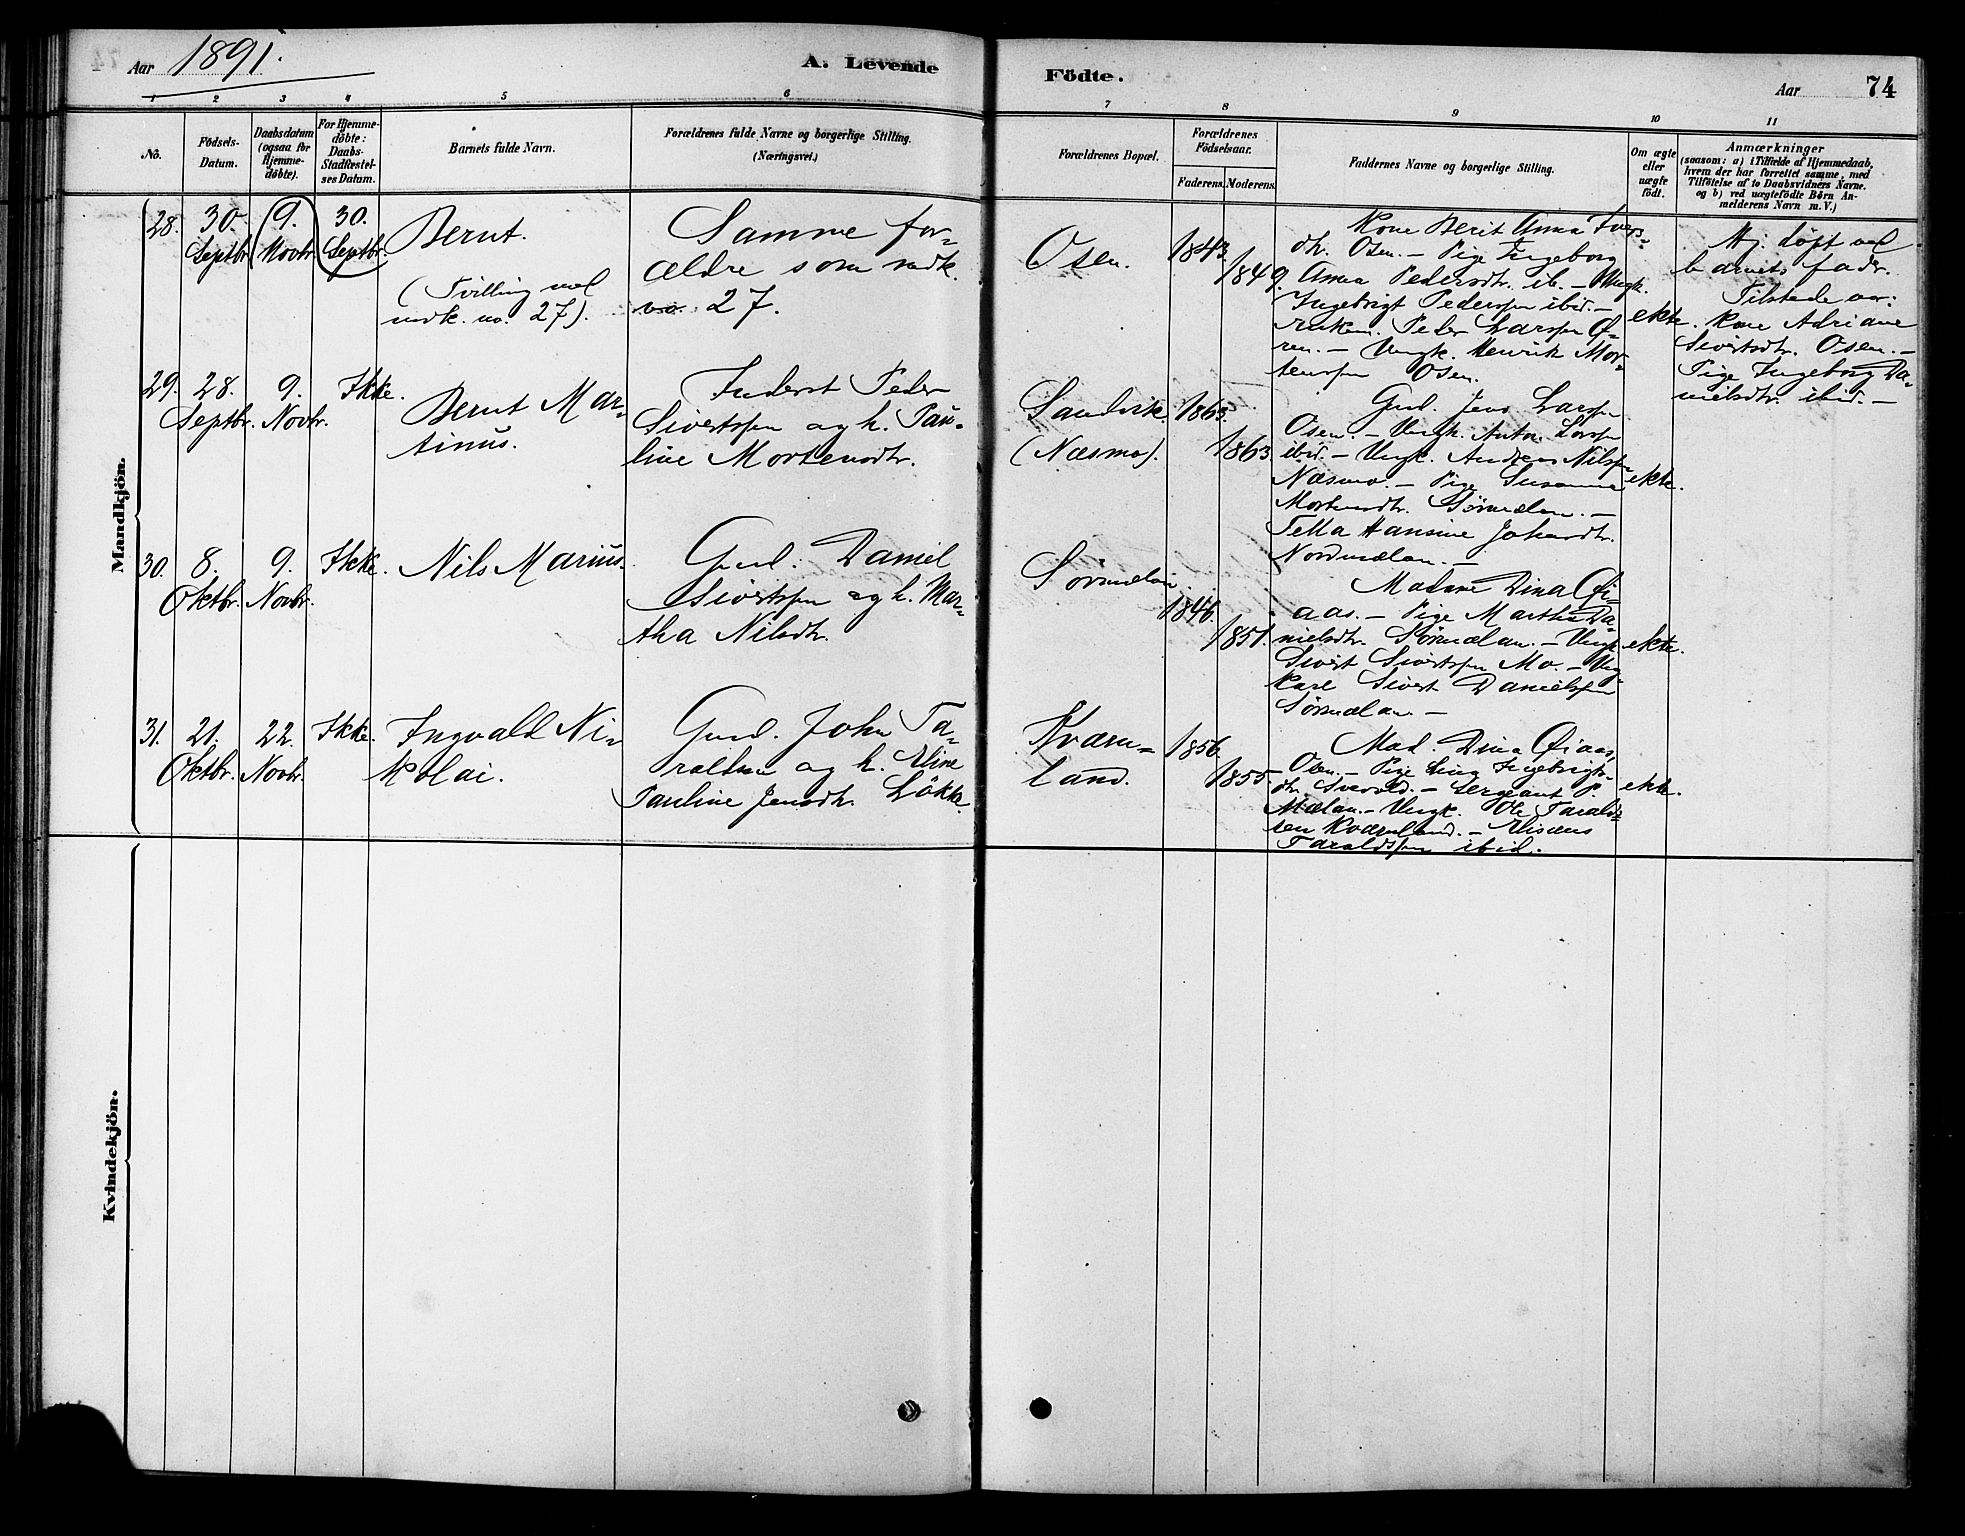 Aar 1891.
A. Levende
Födte.
Aar
74
1
2
3
4
5
6
7
8
9
10
11
No.
Födsels-
Datum.
Daabsdatum
(ogsaa for
Hjemme-
döbte).
For Hjemme-
döbte:
Daabs-
Stadfæstel-
ses Datum.
Barnets fulde Navn.
Forældrenes fulde Navne og borgerlige Stilling.
(Næringsvei.)
Forældrenes Bopæl.
Forældrenes
Födselsaar.
Faderens.
Moderens.
Faddernes Navne og borgerlige Stilling.
Om ægte
eller
uægte
födt.
Anmærkninger
(saasom: a) i Tilfælde af Hjemmedaab,
hvem der har forrettet samme, med
Tilföielse af to Daabsvidners Navne.
og b) ved uægtefödte Börn An-
melderens Navn m. V.)
Mandkjön.
28.
30.
Septbr.
9.
Novbr.
30.
Septbr.
Bernt.
(Tvilling med
mdk. no. 27).
Samme for-
ældre som mdk.
no. 27.
Osen.
1843.
1849.
Kone Berit Anna Ivers-
dtr. Osen. - Pige Ingeborg
Anna Pedersdtr. ib. - Ungk.
Ingebrigt Pederssen ibid. -
Enkem. Peder Larssen Ø-
ren. - Ungk. Henrik Mor-
tenssen Osen.
ekte.
Hj. døpt ved
barnets fader.
Tilstede var:
Kone Adriane
Sivertsdtr. Osen. -
Pige Ingeborg Da-
nielsdtr. ibid. -
29.
28.
Septbr.
9.
Novbr.
Ikke.
Bernt Mar-
tinus.
Inderst Peder
Sivertssen og h. Pau-
line Mortensdtr.
Sandvik.
(Næsmo).
1863.
1863.
Gmd. Jens Larssen
Osen. - Ungk. Anton Larssen
ibid. - Ungk. Andreas Nilssen
Næsmo. - Pige Susanna
Mortensdtr. Sørmælan. -
Tella Hansine Johansdtr.
Nordmælan. -
ekte.
30.
8.
Oktbr.
9.
Novbr.
Ikke.
Nils Marius.
Gmd. Daniel
Sivertssen og h. Mar-
tha Nilsdtr.
Sørmelan.
1846.
1851.
Madame Dina Øi-
aas. - Pige Martha Da-
nielsdtr. Sørmælan. - Ungk.
Sivert Sivertssen Mo. - Ung-
karl Sivert Danielssen
Sørmælan -
ekte.
31.
21.
Oktbr.
22.
Novbr.
Ikke.
Ingvald Ni-
kolai.
Gmd. John Ta-
raldsen og h. Eline
Pauline Jensdtr. Løkke.
Kværn-
land.
1856
1855
Mad. Dina Øiaas,
Osen. - Pige Lina Ingebrigts-
dtr. - Sergeant P.
Mælan. - Ungk. Ole Tarald-
sen Kværnland. - Elisæus
Taraldssen ibid.
ekte.
Kvindekjön.